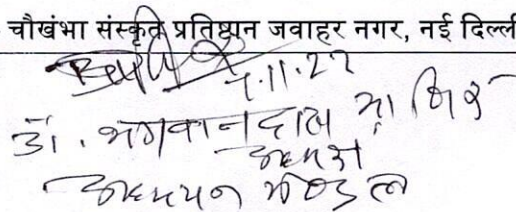 चौखंभा संस्कृत प्रतिष्ठान जवाहर नगर, नई दिल्ली
7.11.22
डॉ. भगवानदास
अध्यक्ष
अध्ययन मण्डल